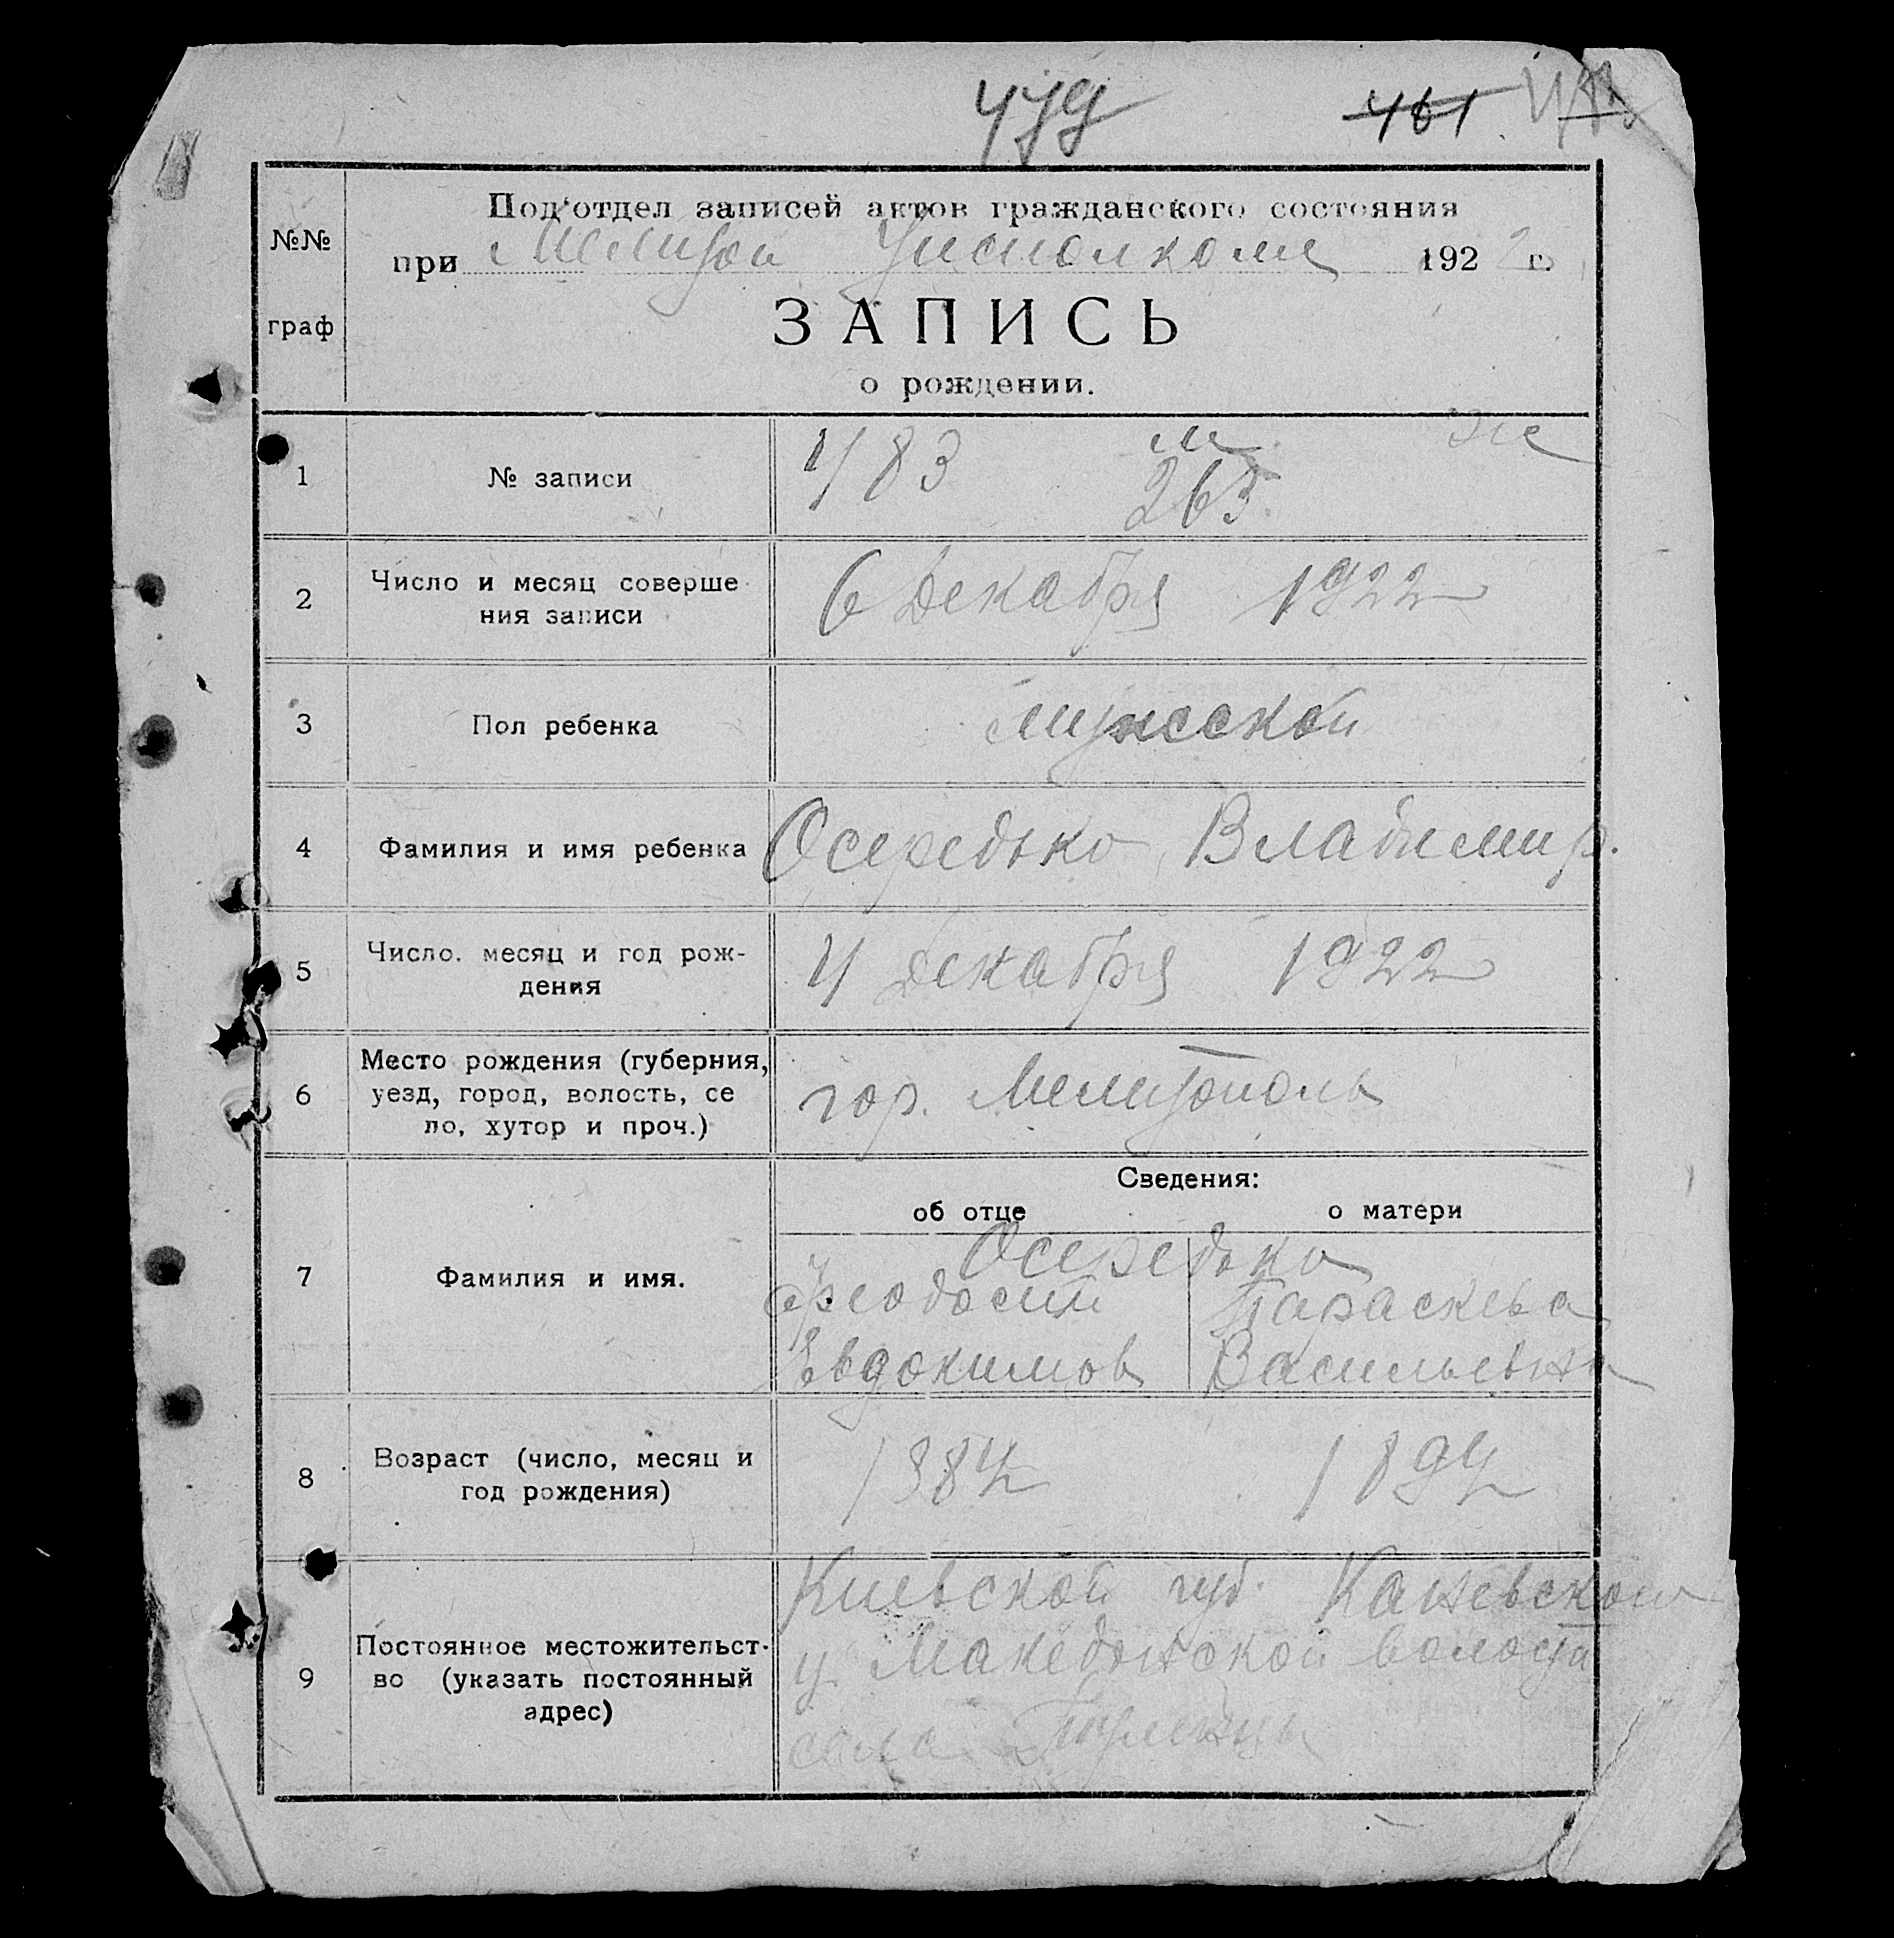 479
461
Под'отдел записей актов гражданского состояния
№№
при Мелитоп Уисполкоме 1922 г.
граф
ЗАПИСЬ
о рождении.
1 № записи 483 м 263. же
2 Число и месяц соверше
ния записи
6 Декабря 1922
3 Пол ребенка мужской
4 Фамилия и имя ребенка Осередько Владимир.
5 Число. месяц и год рож-
дения
4 декабря 1922
6 Место рождения (губерния,
уезд, город, волость, се
ло, хутор и проч.)
гор. Мелитополь
Сведения:
об отце о матери
7 Фамилия и имя.
Осередько
Феодосий Параскева
Евдокимов Васильевна
8 Возраст (число, месяц и
год рождения)
1884 1894
9 Постоянное местожительст-
во (указать постоянный
адрес)
Киевской губ. Каневского
у. Македонской волости
села